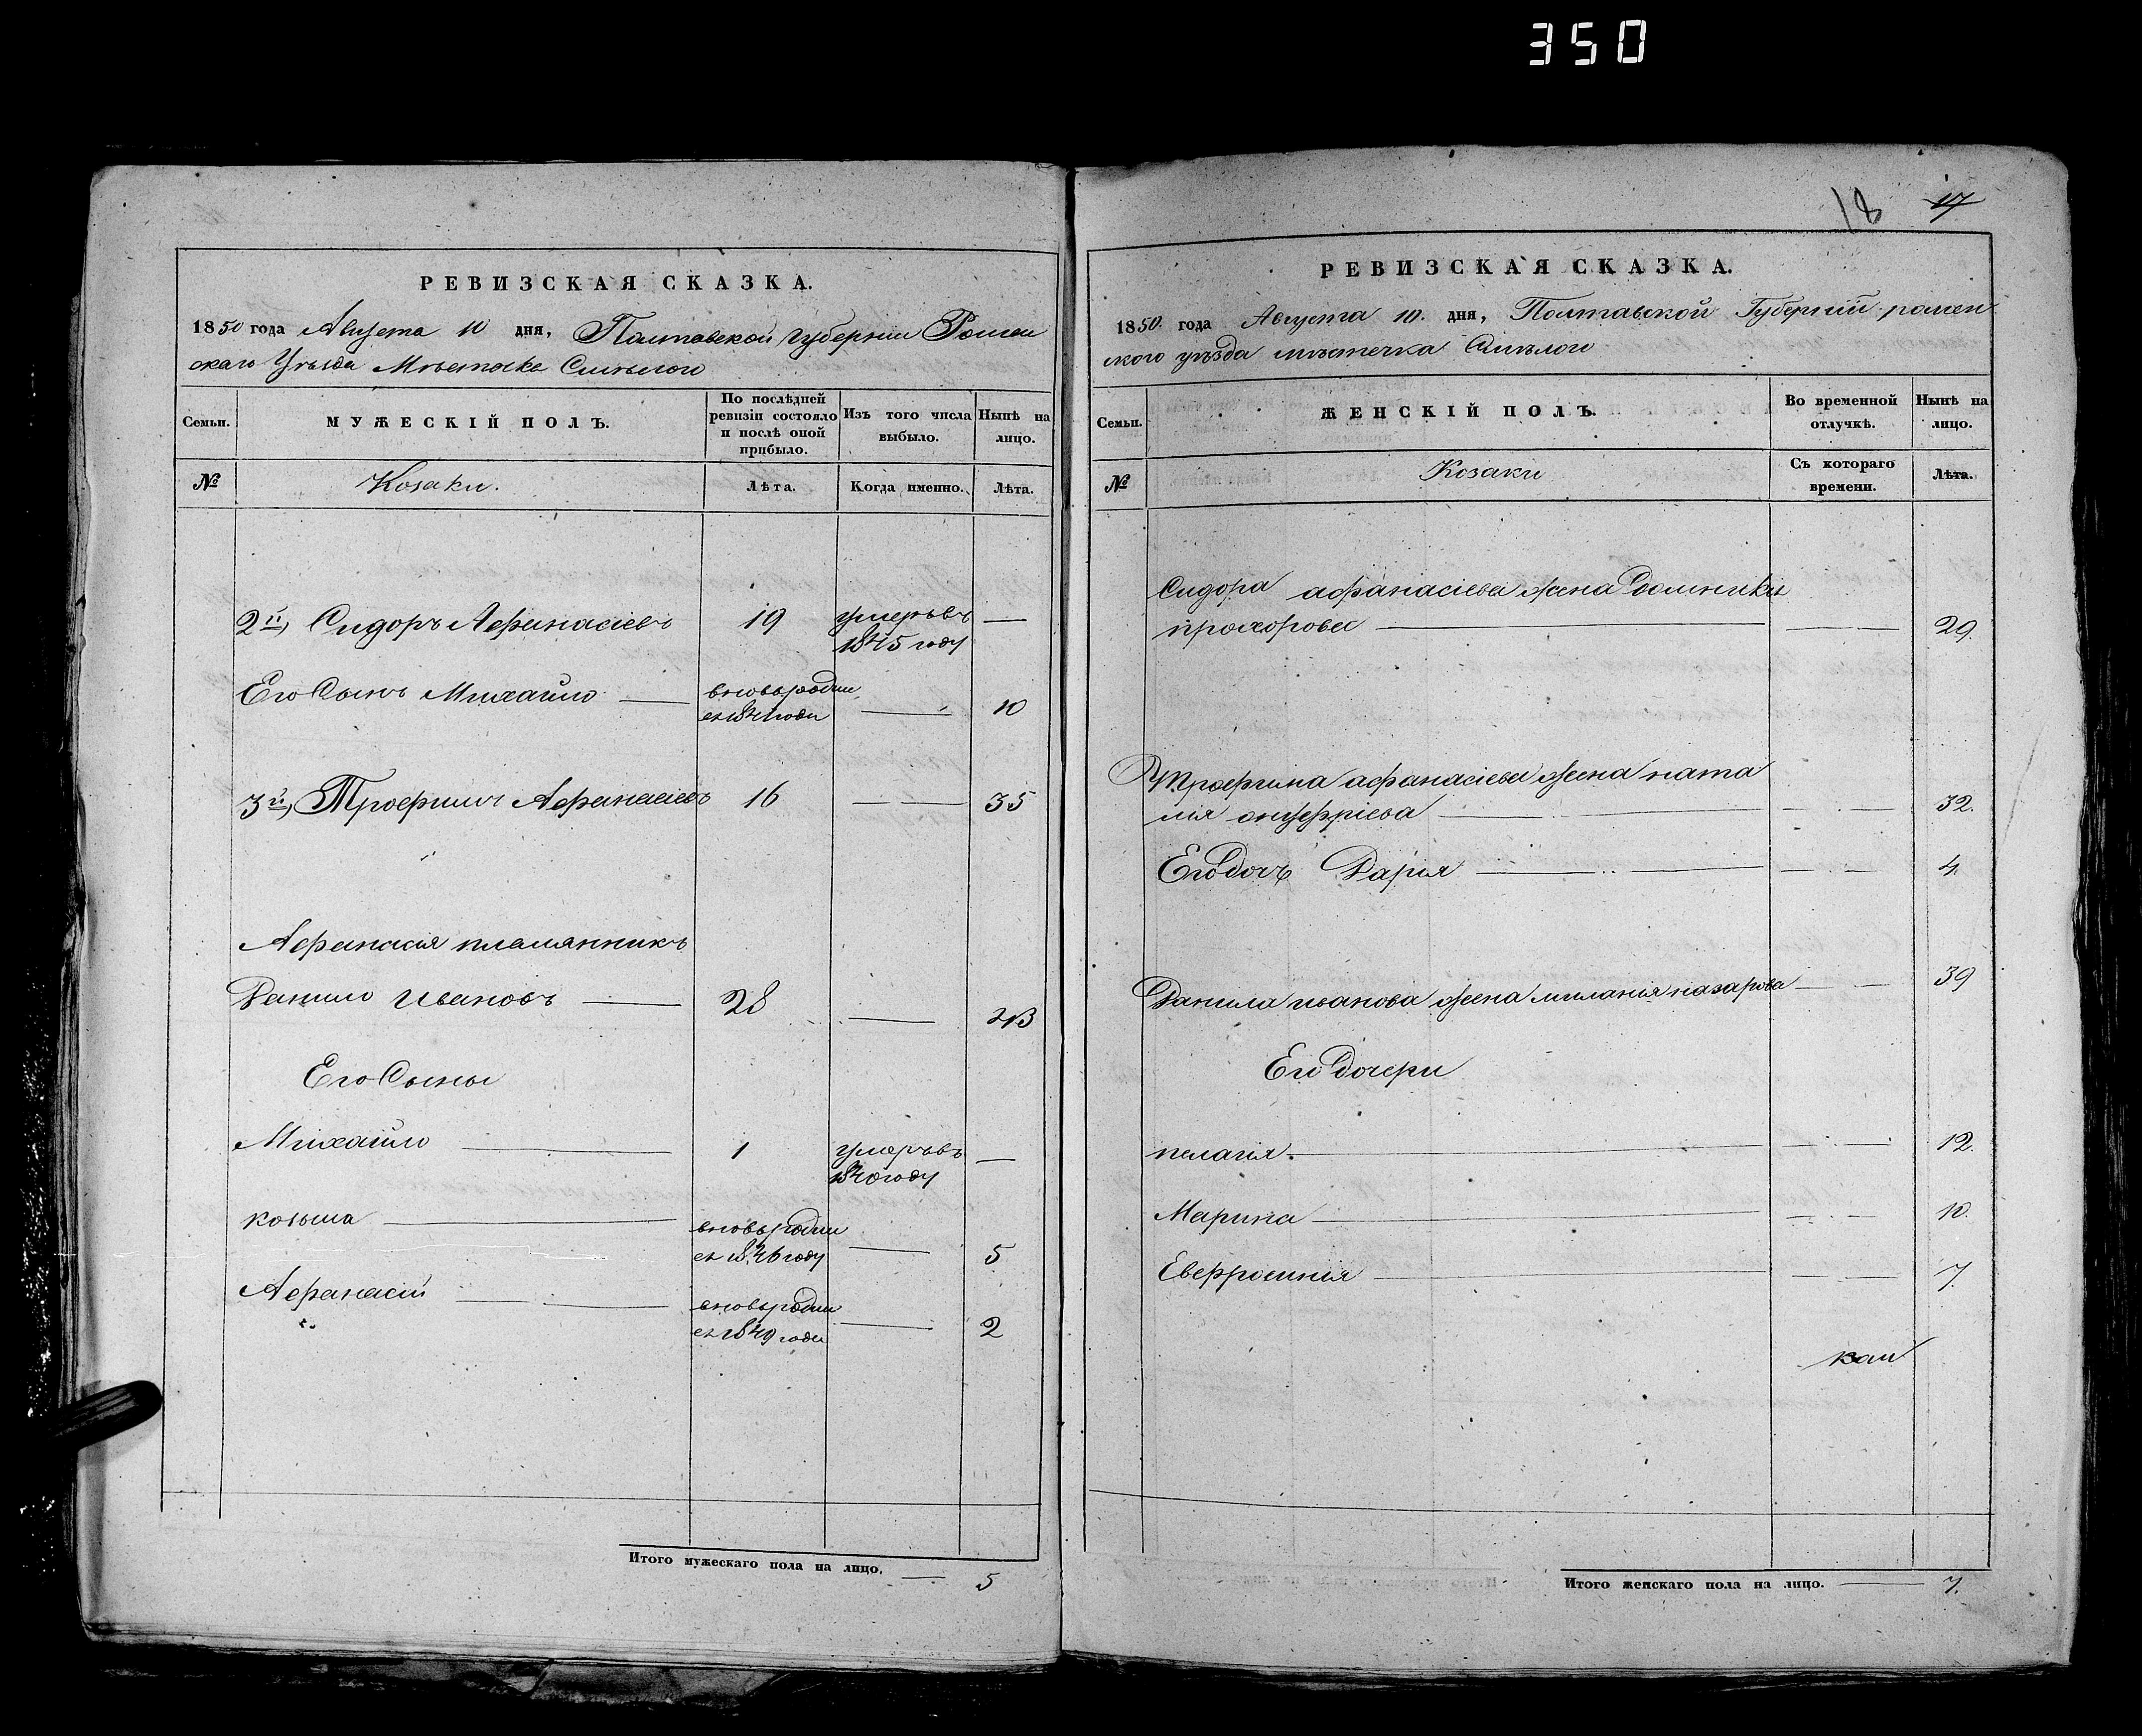 350
РЕВИЗСКАЯ СКАЗКА.
1850 года Августа 10 дня, Полтавской Губернии Ромен
скаго Уезда Местечка Смелого
Семьи.
МУЖЕСКІЙ ПОЛЪ.
По послѣдней ревизіи состояло и послѣ оной прибыло.
Изъ того числа выбыло.
Нынѣ на лицо.
№
Козаки.
Лѣта.
Когда именно.
Лѣта.
2й, Сидоръ Афанасіевъ 19 умеръ въ —
1845 году
Его Сынъ Михайло — вновь родил
ся 1841 года — 10
3й, Трофимъ Афанасіевъ 16 — — 35
Афанасія племянникъ
Данило Ивановъ — 28 — 43
Его Сыны
Михайло — 1 умеръ въ —
1840 году
козьма — вновь родил
ся 1846 году — 5
Афанасій — вновь родил
ся 1849 года — 2
Итого мужескаго пола на лицо. — 5
18 17
РЕВИЗСКАЯ СКАЗКА.
1850. года Августа 10. дня, Полтавской Губерніи ромен
ского уѣзда мѣстечка Смѣлого
Семьи.
ЖЕНСКІЙ ПОЛЪ.
Во временной отлучкѣ.
Нынѣ на лицо.
№
Козаки
Съ котораго времени.
Лѣта.
Сидора афанасіева жена Домникія
прохорова — — 29.
Трофима афанасіева жена ната
лія онуфріева — — 32.
Его дочь Дарія — — 4.
Данила иванова жена миланія назарова — 39
Его дочери
пелагія. — — 12.
Марина — — 10.
Евфросинія — — 7.
Итого женскаго пола на лицо. — 7.